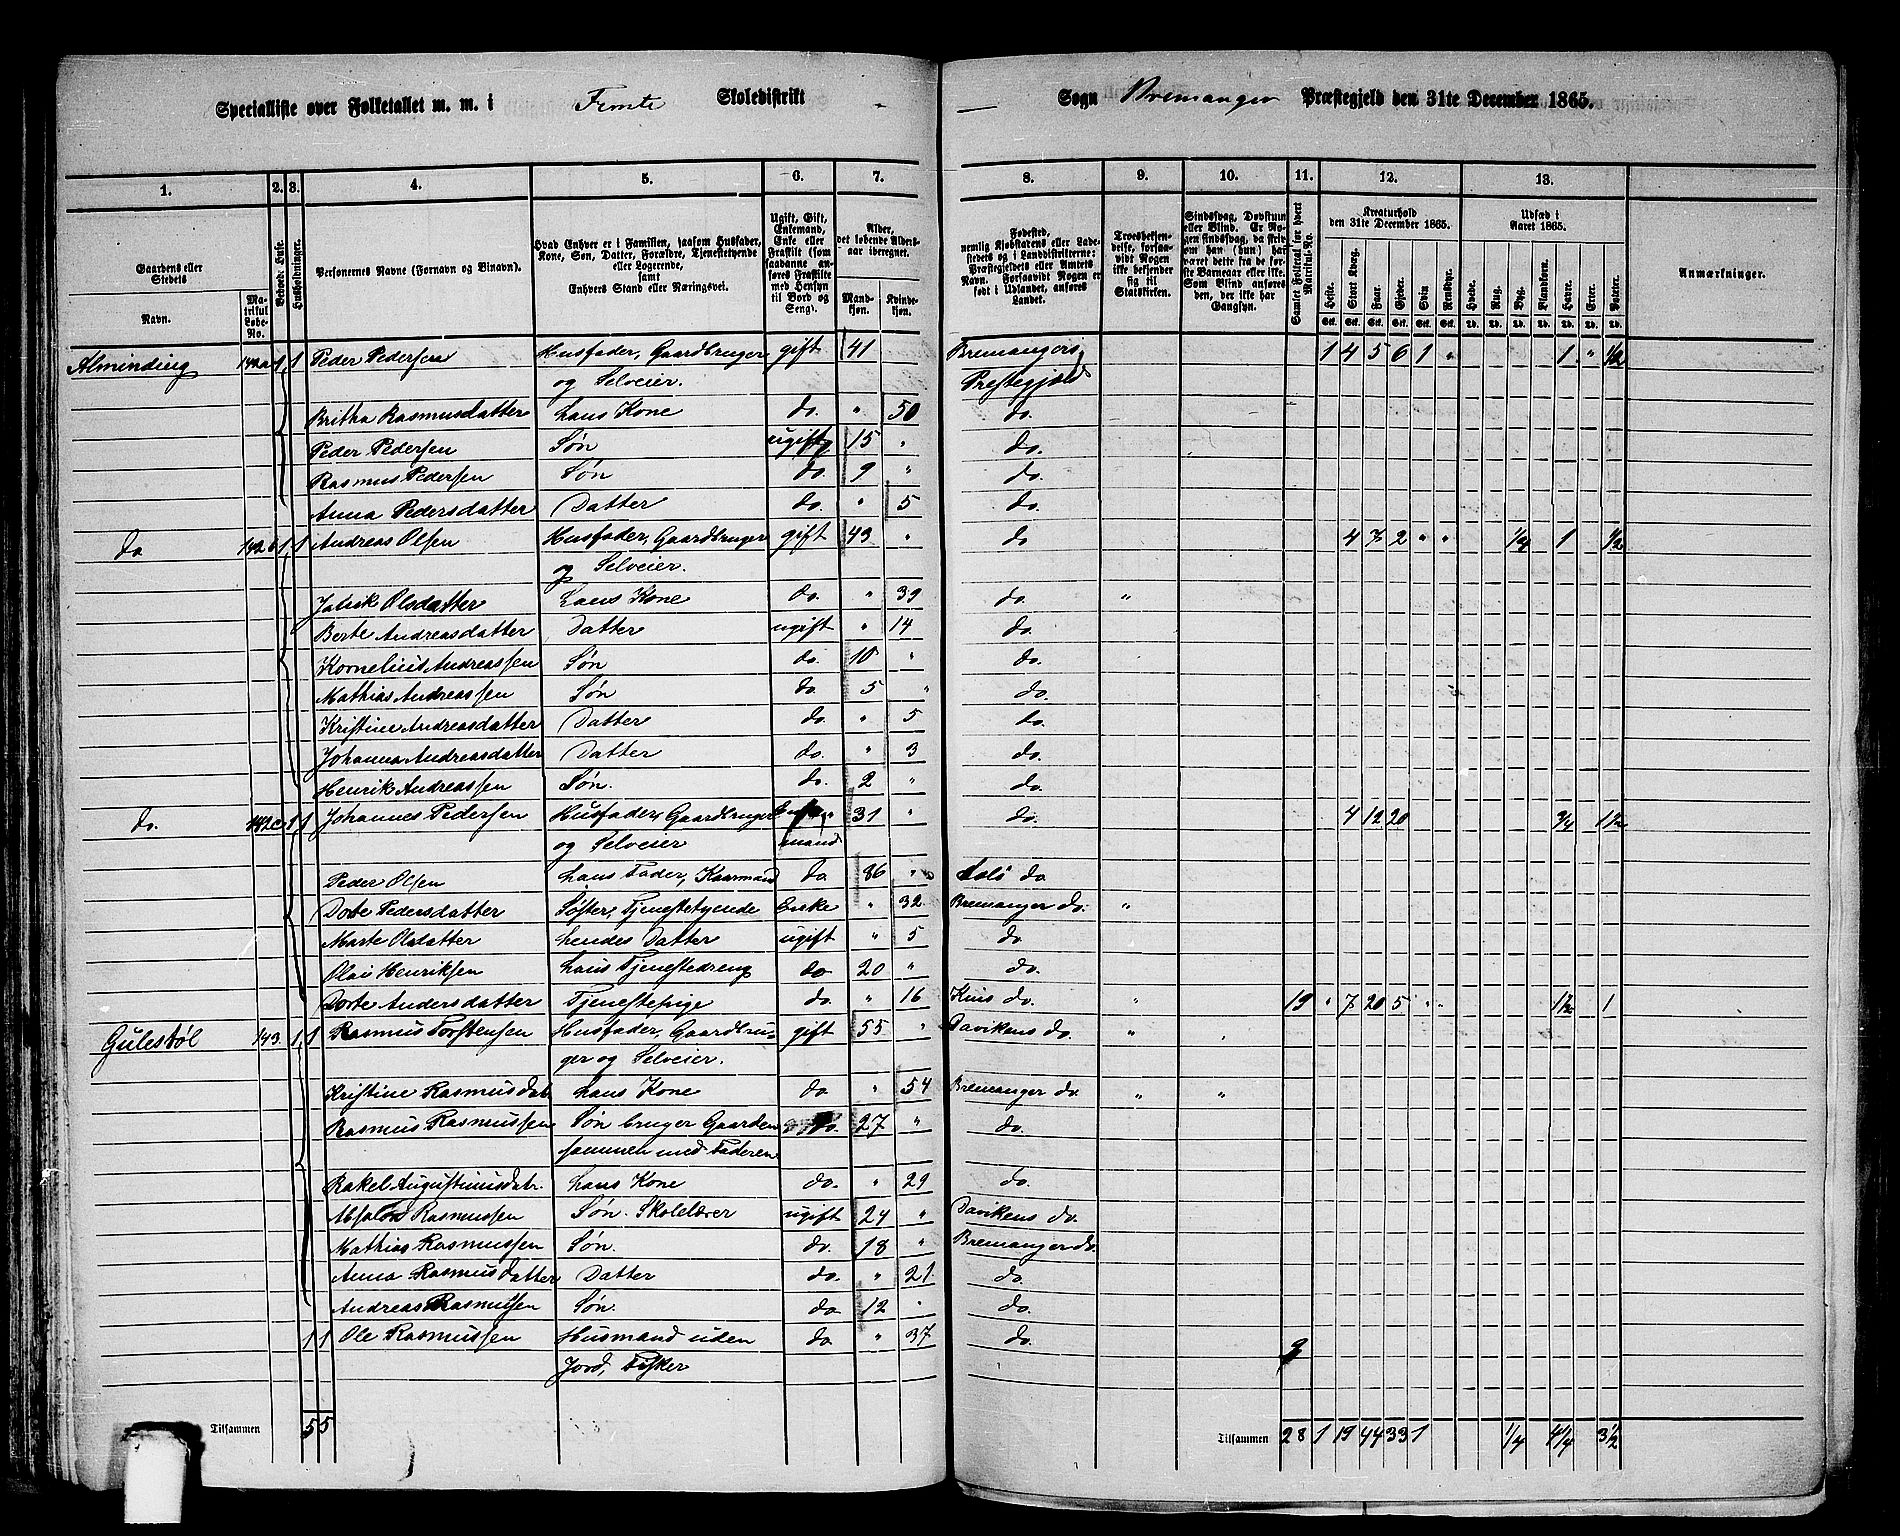 Specialliste over Folketallet m. m. i Femte Skoledistrikt
Sogn Bremanger Præstegjeld den 31te December 1865.
1. 2. 3. 4. 5. 6. 7. 8. 9. 10. 11. 12. 13.
Gaardens eller Stedets Navn.
Matrikul Løbe-No.
Beboede Huse.
Husholdninger.
Personernes Navne (Fornavn og Binavn).
Hvad Enhver er i Familien, saasom Husfader, Kone, Søn, Datter, Forældre, Tjenestetyende eller Logerende, samt Enhvers Stand eller Næringsvei.
Ugift, Gift, Enkemand, Enke eller Fraskilt (som saadanne anføres Fraskilte med Hensyn til Bord og Seng).
Alder, det løbende Aldersaar iberegnet.
Mandkjøn. Kvindekjøn.
Fødested, nemlig Kjøbstadens eller Ladestedets og i Landdistrikterne: Præstegjeldets eller Amtets Navn. Forsaavidt Nogen er født i Udlandet, anføres Landet.
Troesbekjendelse, forsaavidt Nogen ikke bekjender sig til Statskirken.
Sindssvag, Døvstum eller Blind. Er Nogen sindssvag, da skrives om han (hun) har været dette fra de første Barneaar eller ikke. Som Blind anføres den, der ikke har Gangsyn.
Samlet Folketal for hvert Matrikul-No.
Kreaturhold den 31te December 1865.
Heste. Stort Kvæg. Faar. Gjeder. Svin. Rensdyr.
Udsæd i Aaret 1865.
Hvede. Rug. Byg. Blandkorn. Havre. Erter. Poteter.
Anmærkninger.
Alminding 142a 1 1 Peder Pedersen Husfader, Gaardbruger gift 41 Bremangers 1 4 5 6 1 " 1 " 1/2
og Selveier. Prestegjeld
Britha Rasmusdatter hans Kone do. " 50 do.
Peder Pedersen Søn ugift 15 " do.
Rasmus Pedersen Søn do. 9 " do.
Anna Pedersdatter Datter do. " 5 do.
do 142b 1 1 Andreas Olsen Husfader, Gaardbruger gift 43 " do 4 7 2 " " 1/4 1 1/2
og Selveier.
Olsdatter hans Kone do. " 39 do. "
Berte Andreasdatter Datter ugift " 14 do.
Kornelius Andreassen Søn do. 10 " do.
Mathias Andreassen Søn do 5 " do.
Kristine Andreasdatter Datter do. " 5 do.
Johanna Andreasdatter Datter do. " 3 do.
Henrik Andreassen Søn. do. 2 " do.
do. 142c 1 1 Johannes Pedersen Husfader, Gaardbruger Enke- 31 " do. 4 12 20 3/4 1 1/2
og Selveier mand
Peder Olsen hans Fader, Kaarmand do. 86 " do
Dorte Pedersdatter Søster, Tjenestetyende Enke " 32 Bremanger do. "
Marte Olsdatter hendes Datter ugift " 5 do
Olai Henriksen hans Tjenestedreng do 20 " do.
Dorte Andersdatter Tjenestepige do. " 16 Kins do. " 19 " 7 20 5 " " 1 1/2 1
Gulestøl 143 1 1 Rasmus Torstensen Husfader, Gaardbru- gift 55 " Davikens do. "
ger og Selveier.
Kristine Rasmusdatr. hans Kone do " 54 Bremanger do. " "
Rasmus Rasmussen Søn bruger Gaarden do. 27 " do.
sammen med Faderen
Rakel Augustinusdatr. hans Kone do. " 29 do.
Absalon Rasmussen Søn. Skolelærer ugift 24 " Davikens do.
Mathias Rasmussen Søn. do. 18 " Bremanger do.
Anna Rasmusdatter Datter do. " 21 do.
Andreas Rasmussen Søn. do 12 " do.
1 1 Ole Rasmussen Husmand uden do " 37 do. 9
Jord, Fisker
Tilsammen 5 5
Tilsammen 28 1 19 44 33 1 1/4 4 1/4 3 1/2